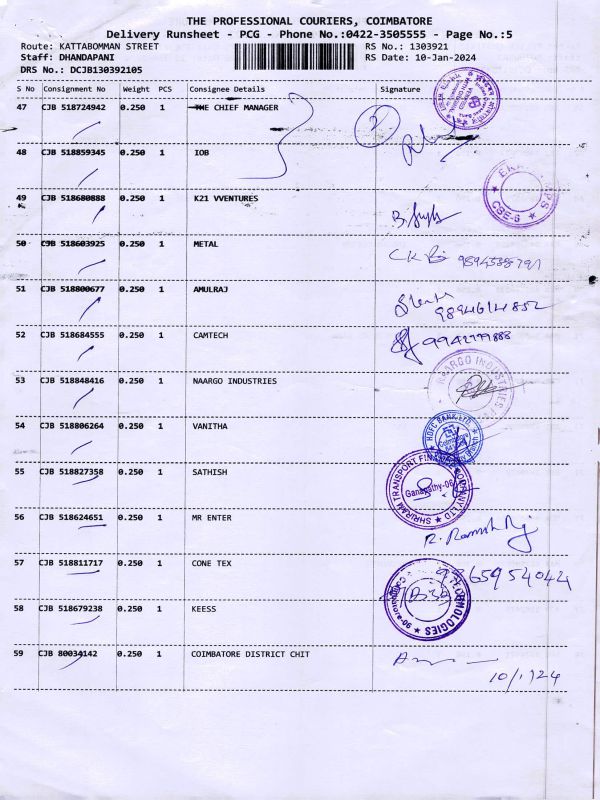 THE PROFESSIONAL COURIERS, COIMBATORE
Delivery Runsheet - PCG - Phone No.:0422-3505555 - Page No.:5
Route: KATTABOMMAN STREET RS No.: 1303921
Staff: DHANDAPANI RS Date: 10-Jan-2024
DRS No.: DCJB130392105
S No Consignment No Weight PCS Consignee Details Signature
47 CJB 518724942 0.250 1 THE CHIEF MANAGER
2
48 CJB 518859345 0.250 1 IOB
49 CJB 518680888 0.250 1 K21 VVENTURES
CBE-6
50 CJB 518603925 0.250 1 METAL
51 CJB 518800677 0.250 1 AMULRAJ
9894614852
52 CJB 518684555 0.250 1 CAMTECH
53 CJB 518848416 0.250 1 NAARGO INDUSTRIES
NAARGO INDUSTRIES
54 CJB 518806264 0.250 1 VANITHA
HDFC BANK LTD
55 CJB 518827358 0.250 1 SATHISH
SHRIRAM TRANSPORT FINANCE COMPANY LTD
Ganapathy-06
56 CJB 518624651 0.250 1 MR ENTER
57 CJB 518811717 0.250 1 CONE TEX
9365954044
58 CJB 518679238 0.250 1 KEESS
59 CJB 80034142 0.250 1 COIMBATORE DISTRICT CHIT
10/1/24